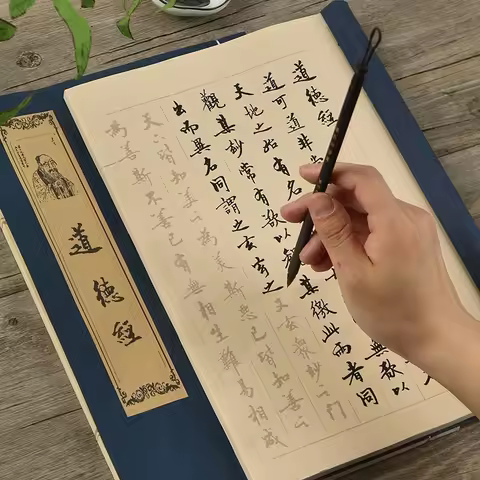 道德經
道可道非
天地之始有名
無欲以
觀其妙常有欲以
其徼此兩者同
出而異名同謂之玄玄之又玄眾妙之門
天下皆知美之為美斯惡已皆知善之
為善斯不善已有無相生難易相成
道德經